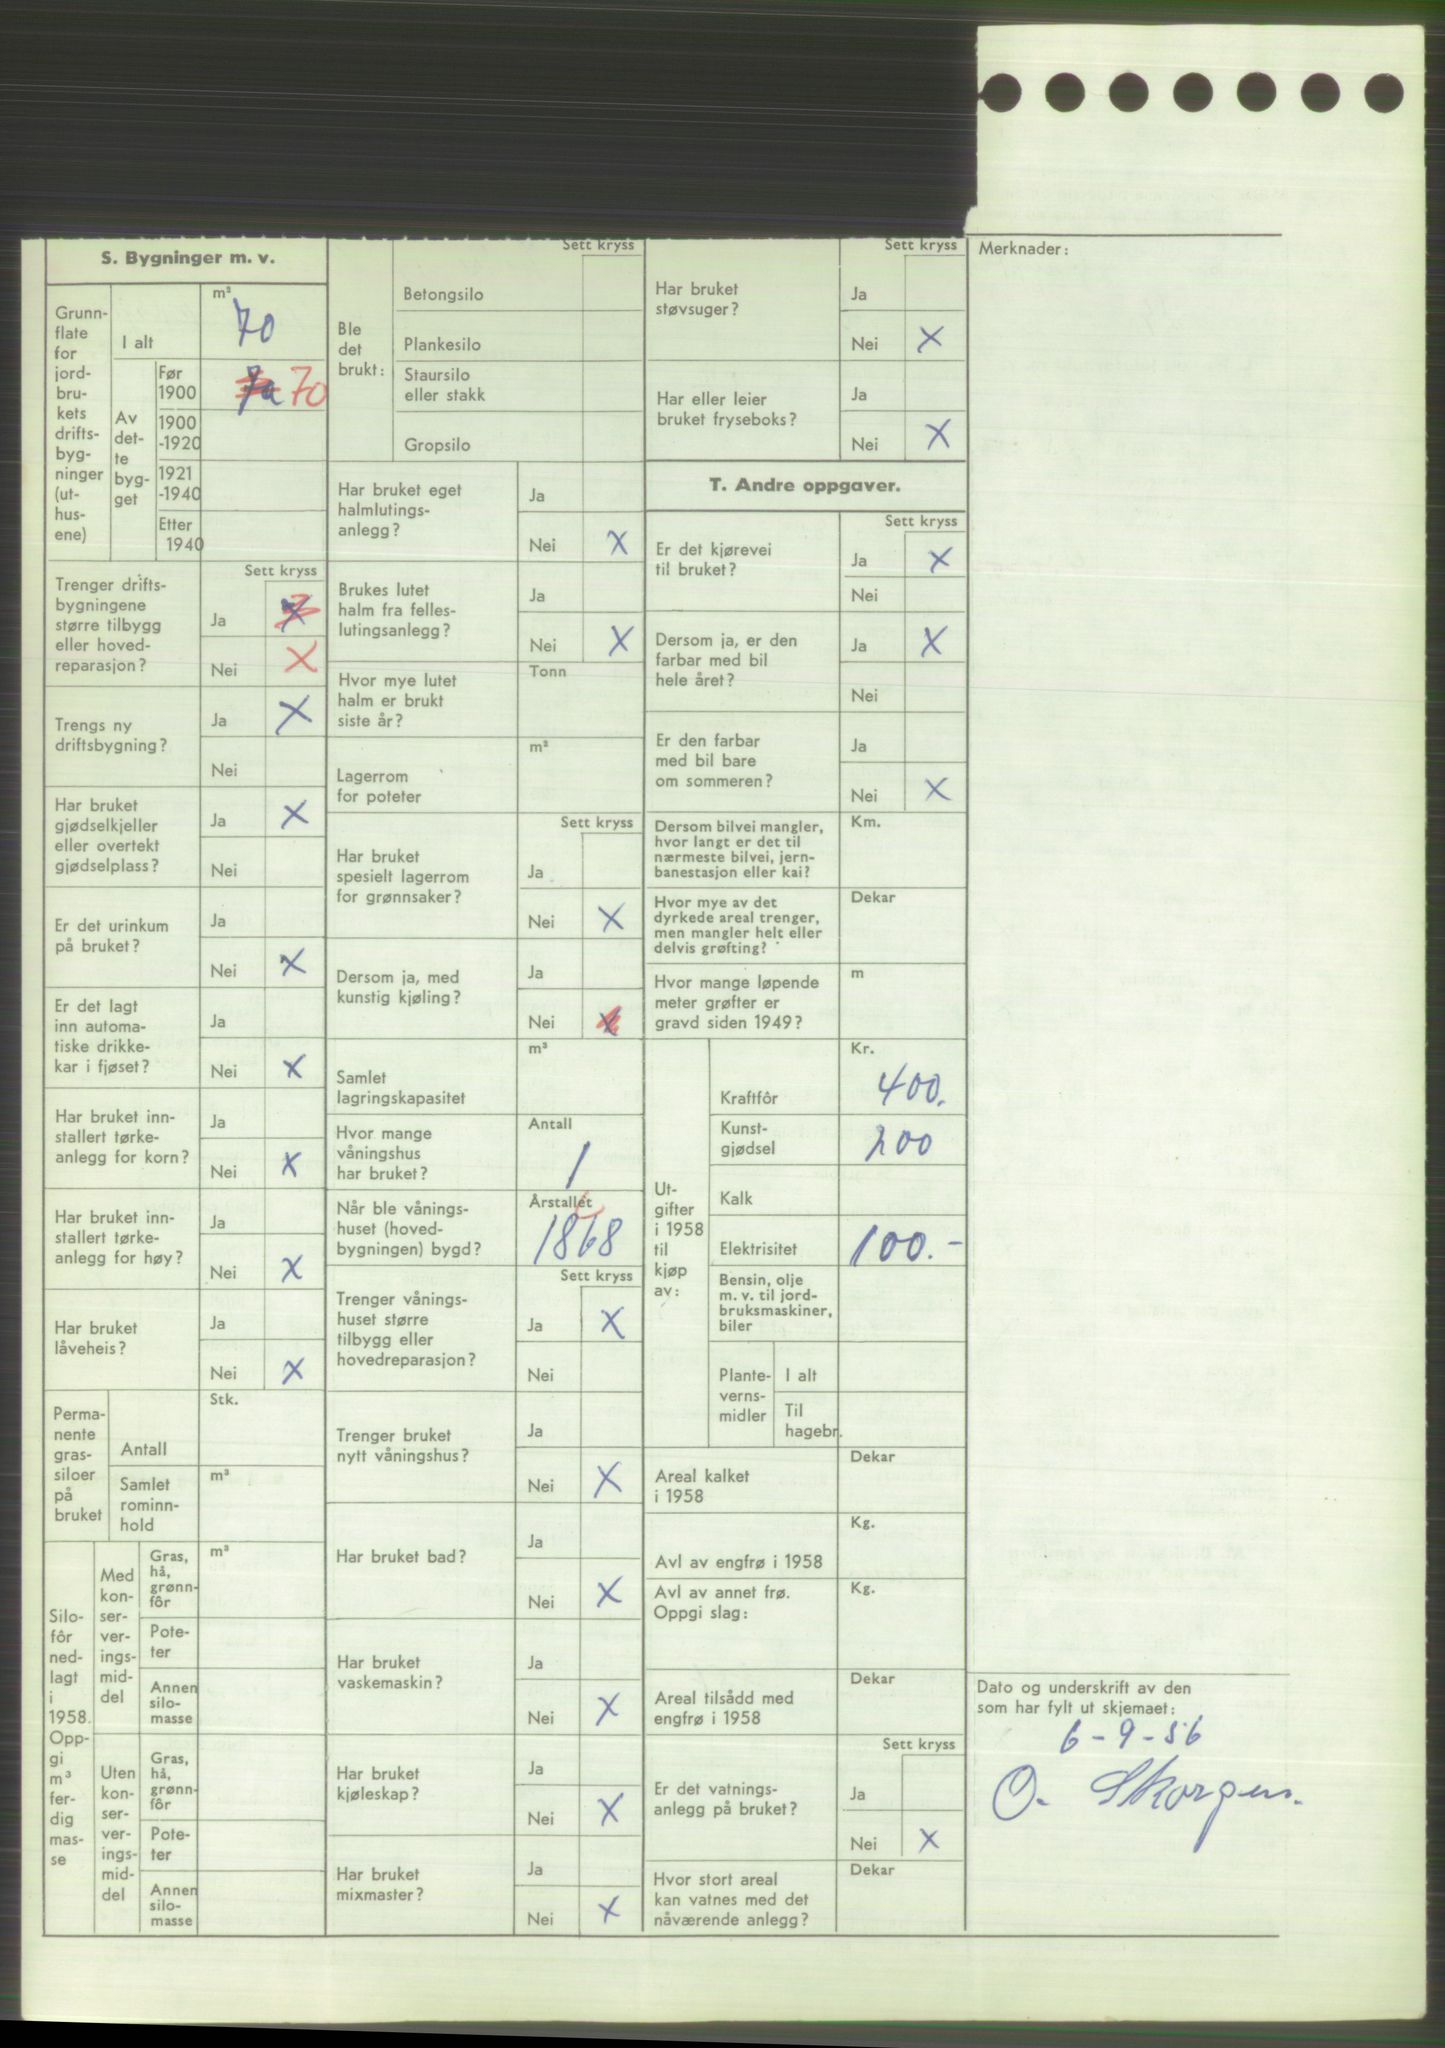 S. Bygninger m. v.
Grunn-
flate
for
jord-
bru-
kets
drifts-
byg-
ninger
(ut-
hus-
ene)
I alt
m²
70
Av
det-
te
byg-
get
Før
1900
70
1900
-1920
1921
-1940
Etter
1940
Sett kryss
Trenger drifts-
bygningene
større tilbygg
eller hoved-
reparasjon?
Ja X
Nei X
Trengs ny
driftsbygning?
Ja X
Nei
Har bruket
gjødselkjeller
eller overtekt
gjødselplass?
Ja X
Nei
Er det urinkum
på bruket?
Ja
Nei X
Er det lagt
inn automa-
tiske drikke-
kar i fjøset?
Ja
Nei X
Har bruket inn-
stallert tørke-
anlegg for korn?
Ja
Nei X
Har bruket inn-
stallert tørke-
anlegg for høy?
Ja
Nei X
Har bruket
låveheis?
Ja
Nei X
Perma-
nente
gras-
siloer
på
bruket
Antall
Stk.
Samlet
rominn-
hold
m³
Silo-
fôr
ned-
lagt
i
1958.
Opp-
gi
m³
fer-
dig
mas-
se
Med
kon-
ser-
ver-
ings-
mid-
del
Gras,
hå,
grønn-
fôr
m³
Pote-
ter
Annen
silo-
masse
Uten
kon-
ser-
ver-
ings-
mid-
del
Gras,
hå,
grønn-
fôr
Pote-
ter
Annen
silo-
masse
Sett kryss
Ble
det
brukt:
Betongsilo
Plankesilo
Staursilo
eller stakk
Gropsilo
Har bruket eget
halmlutings-
anlegg?
Ja
Nei X
Brukes lutet
halm fra felles-
lutingsanlegg?
Ja
Nei X
Hvor mye lutet
halm er brukt
siste år?
Tonn
Lagerrom
for poteter
m²
Sett kryss
Har bruket
spesielt lagerrom
for grønnsaker?
Ja
Nei X
Dersom ja, med
kunstig kjøling?
Ja
Nei X
Samlet
lagringskapasitet
m³
Hvor mange
våningshus
har bruket?
Antall
1
Når ble vånings-
huset (hoved-
bygningen) bygd?
Årstallet
1868
Sett kryss
Trenger vånings-
huset større
tilbygg eller
hovedreparasjon?
Ja X
Nei
Trenger bruket
nytt våningshus?
Ja
Nei X
Har bruket bad?
Ja
Nei X
Har bruket
vaskemaskin?
Ja
Nei X
Har bruket
kjøleskap?
Ja
Nei X
Har bruket
mixmaster?
Ja
Nei X
Sett kryss
Har bruket
støvsuger?
Ja
Nei X
Har eller leier
bruket fryseboks?
Ja
Nei X
T. Andre oppgaver.
Sett kryss
Er det kjørevei
til bruket?
Ja X
Nei
Dersom ja, er den
farbar med bil
hele året?
Ja X
Nei
Er den farbar
med bil bare
om sommeren?
Ja
Nei X
Dersom bilvei mangler,
hvor langt er det til
nærmeste bilvei, jern-
banestasjon eller kai?
Km.
Hvor mye av det
dyrkede areal trenger,
men mangler helt eller
delvis grøfting?
Dekar
Hvor mange løpende
meter grøfter er
gravd siden 1949?
m
Ut-
gifter
i 1958
til
kjøp
av:
Kr.
Kraftfôr 400.
Kunst-
gjødsel 200
Kalk
Elektrisitet 100.-
Bensin, olje
m. v. til jord-
bruksmaskiner,
biler
Plante-
verns-
midler
I alt
Til
hagebr.
Areal kalket
i 1958
Dekar
Avl av engfrø i 1958
Kg.
Avl av annet frø.
Oppgi slag:
Kg.
Areal tilsådd med
engfrø i 1958
Dekar
Sett kryss
Er det vatnings-
anlegg på bruket?
Ja
Nei X
Hvor stort areal
kan vatnes med det
nåværende anlegg?
Dekar
Merknader:
Dato og underskrift av den
som har fylt ut skjemaet:
6-9-56
O. Skorgen.